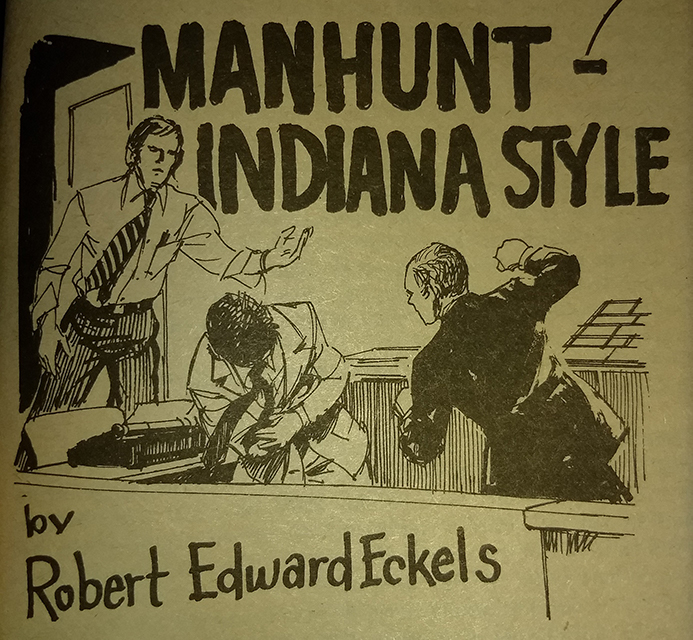 MANHUNT -
INDIANA STYLE
by
Robert Edward Eckels